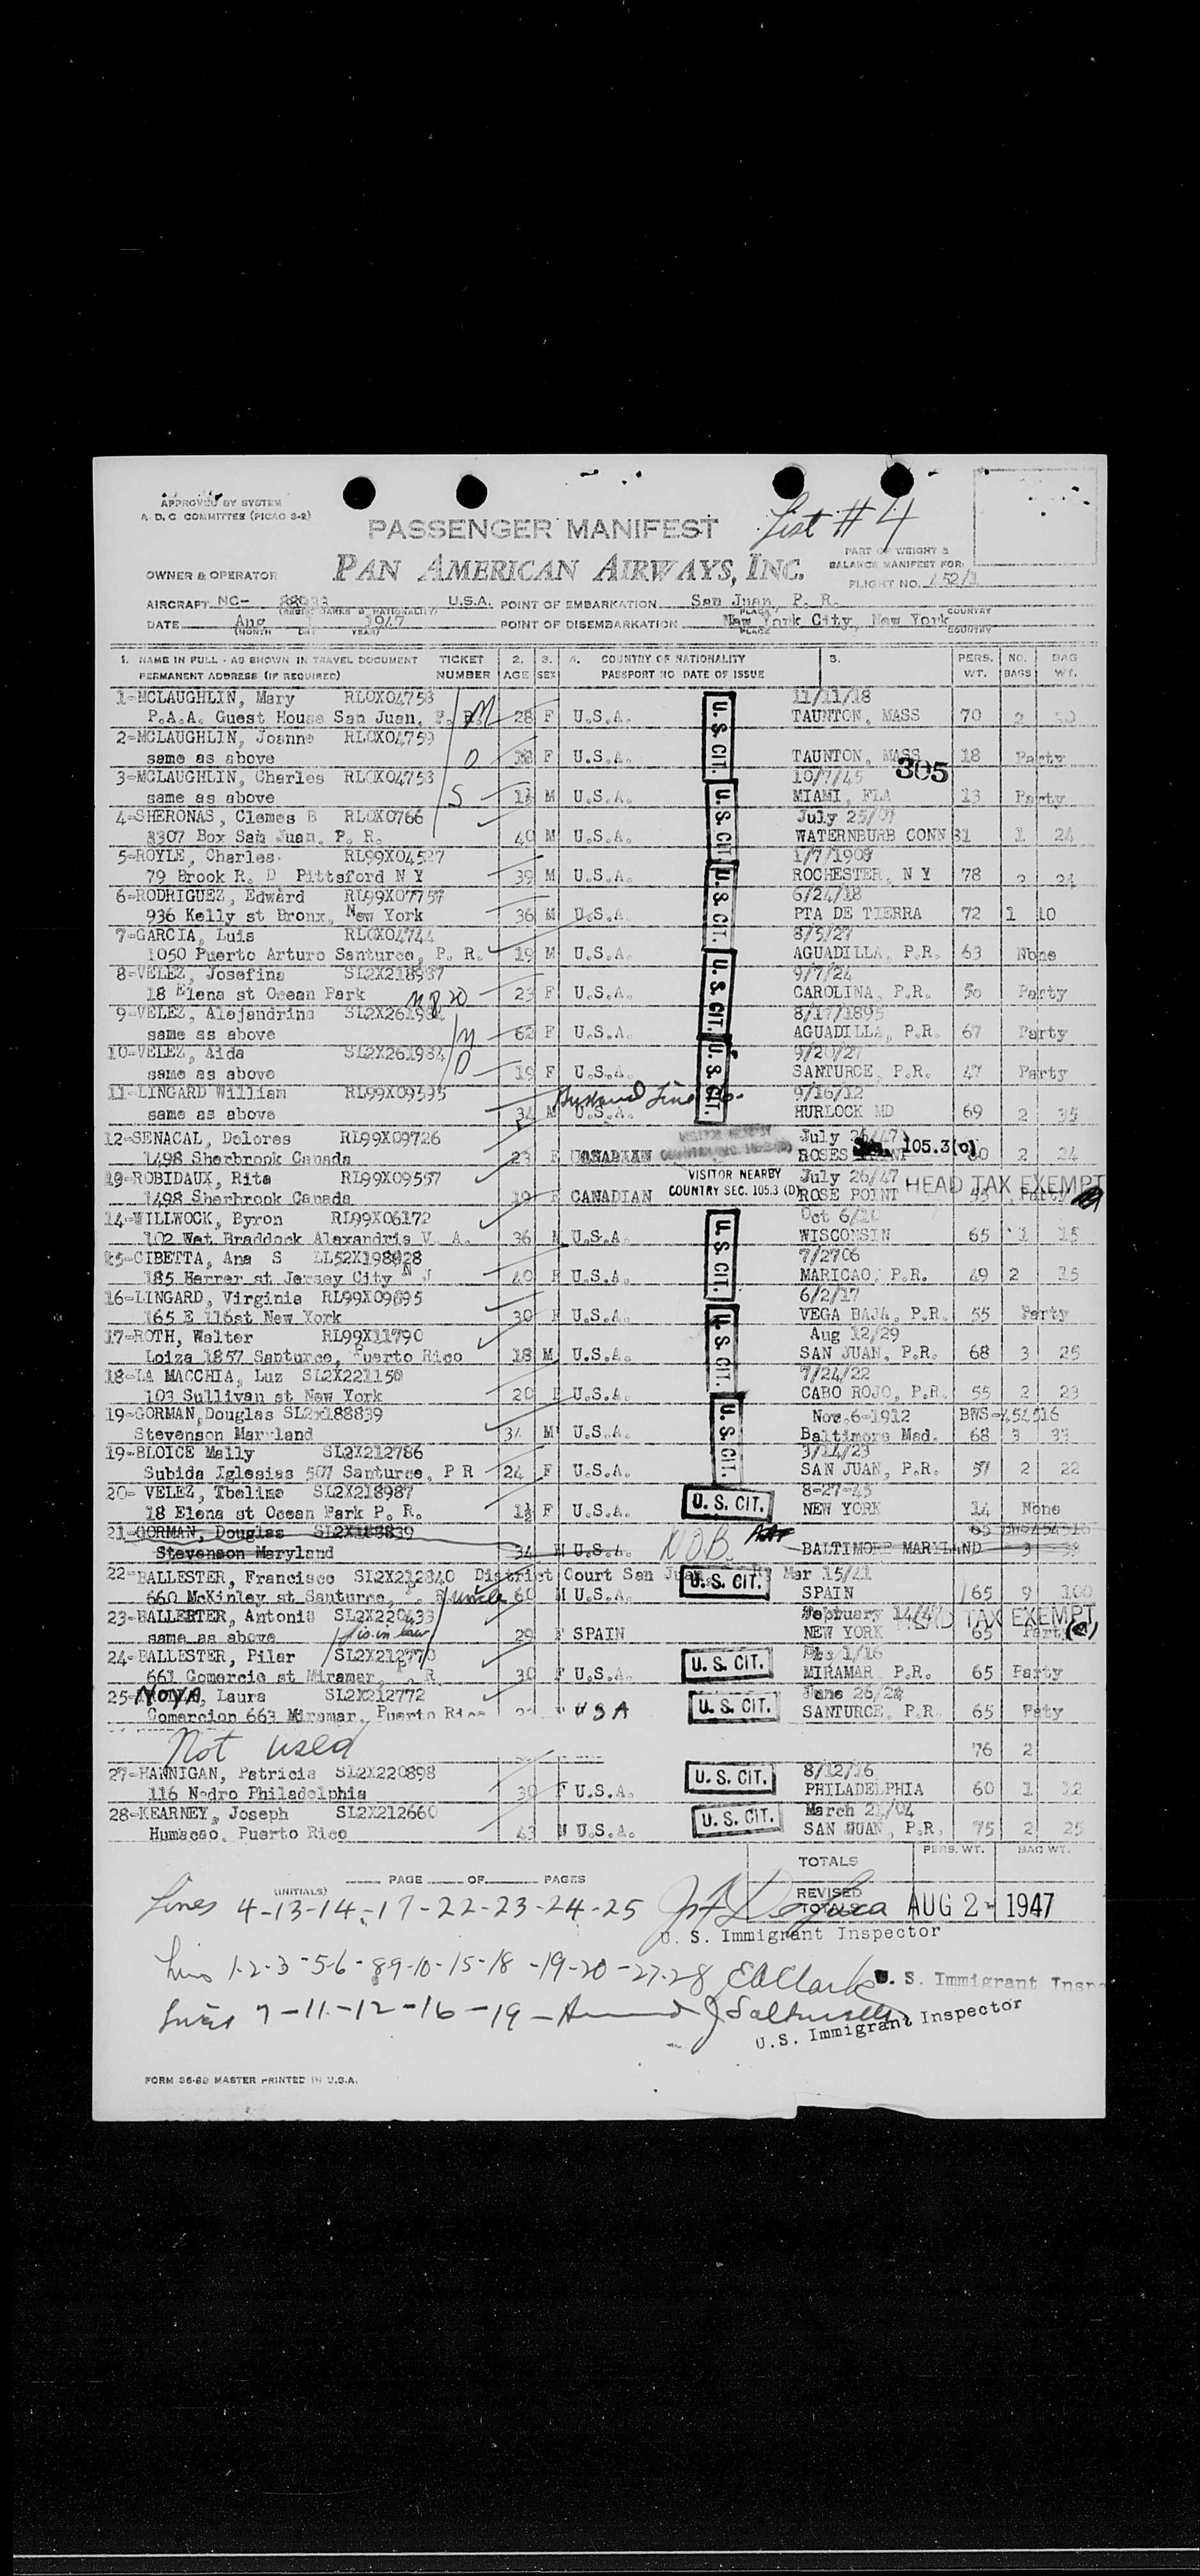 APPROVED BY SYSTEM
A. D. C. COMMITTEE (PICAO 3-2)
List # 4
PASSENGER MANIFEST
PART OF WEIGHT &
BALANCE MANIFEST FOR:
OWNER & OPERATOR
PAN AMERICAN AIRWAYS, INC.
FLIGHT NO. 452/1
AIRCRAFT NC- U.S.A. POINT OF EMBARKATION San Juan, P. R.
PLACE COUNTRY
DATE Aug 1947 POINT OF DISEMBARKATION New York City, New York
(MONTH DAY YEAR) PLACE COUNTRY
1. NAME IN FULL - AS SHOWN IN TRAVEL DOCUMENT TICKET 2. 3. 4. COUNTRY OF NATIONALITY 5. PERS. NO. BAG
PERMANENT ADDRESS (IF REQUIRED) NUMBER AGE SEX PASSPORT NO DATE OF ISSUE WT. BAGS WT.
1-MCLAUGHLIN, Mary RLOX04758 11/11/18
P.A.A. Guest House San Juan, P. R. M 28 F U.S.A. U.S. CIT. TAUNTON, MASS 70 2
2-MCLAUGHLIN, Joanne RLOX04759
same as above D F U.S.A. TAUNTON, MASS 18 Party
305
3-MCLAUGHLIN, Charles RLOX04753 10/7/45
same as above S 1½ M U.S.A. U.S. CIT. MIAMI, FLA 13 Party
4-SHERONAS, Clemes B RLOX0766 July 25/07
3307 Box San Juan, P. R. 40 M U.S.A. WATERNBURB CONN 1 24
5-ROYLE, Charles RL99X04527 1/7/1909
79 Brook R. D Pittsford N Y 39 M U.S.A. U.S. CIT. ROCHESTER, N Y 78 2 24
6-RODRIGUEZ, Edward RL99X07757 6/24/18
936 Kelly st Bronx, New York 36 M U.S.A. PTA DE TIERRA 72 1 10
7-GARCIA, Luis RLOX04744 8/5/27
1050 Puerto Arturo Santurce, P. R. 19 M U.S.A. U.S. CIT. AGUADILLA, P.R. 63 None
8-VELEZ, Josefina SL2X218987 9/7/24
18 Elena st Ocean Park 23 F U.S.A. CAROLINA, P.R. 50 Party
9-VELEZ, Alejandrina SL2X261984 8/17/1895
same as above M 62 F U.S.A. AGUADILLA, P.R. 67 Party
10-VELEZ, Aida SL2X261984 9/20/27
same as above D 19 F U.S.A. U.S. CIT. SANTURCE, P.R. 47 Party
11-LINGARD William RL99X09595 Husband Line 16. 9/16/12
same as above 34 M U.S.A. HURLOCK MD 69 2 35
12-SENACAL, Dolores RL99X09726 July 26/47 105.3(D)
1498 Sherbrook Canada 23 F CANADIAN ROSES 2 24
VISITOR NEARBY
COUNTRY SEC. 105.3 (D)
13-ROBIDAUX, Rita RL99X09557 July 26/47 HEAD TAX EXEMPT
1498 Sherbrook Canada 19 F CANADIAN ROSE POINT Party
14-WILLWOCK, Byron RL99X06172 Oct 6/10
102 Wet Braddock Alexandria V. A. 36 M U.S.A. U.S. CIT. WISCONSIN 65 1 15
15-CIBETTA, Ana S LL52X198828 7/2706
185 Harrer st Jersey City N J 40 F U.S.A. MARICAO, P.R. 49 2 15
16-LINGARD, Virginia RL99X09695 6/2/17
165 E 116st New York 30 F U.S.A. VEGA BAJA, P.R. 55 Party
17-ROTH, Walter RL99X11790 Aug 12/29
Loiza 1857 Santurce, Puerto Rico 18 M U.S.A. U.S. CIT. SAN JUAN, P.R. 68 3 25
18-LA MACCHIA, Luz SL2X221150 7/24/22
103 Sullivan st New York 20 F U.S.A. CABO ROJO, P.R. 55 2 23
19-GORMAN, Douglas SL2x188839 Nov. 6-1912 BWS-454516
Stevenson Maryland 34 M U.S.A. U.S. CIT. Baltimore Mad. 68 3 33
19-BLOICE Mally SL2X212786 3/14/23
Subida Iglesias 507 Santurce, P R 24 F U.S.A. SAN JUAN, P.R. 57 2 22
20- VELEZ, Tbelima SL2X218987 8-27-45
18 Elena st Ocean Park P. R. 1½ F U.S.A. U.S. CIT. NEW YORK 14 None
21-GORMAN, Douglas SL2X188839 65 BWS454516
Stevenson Maryland 34 M U.S.A. N.O.B. BALTIMORE MARYLAND 3 33
22-BALLESTER, Francisco SL2X212840 District Court San Juan Mar 15/41
660 McKinley st Santurce, P. R uncle 60 M U.S.A. U.S. CIT. SPAIN 65 9 100
23-BALLESTER, Antonia SL2X220433 February 14/47 HEAD TAX EXEMPT
same as above sis. in law 29 F SPAIN NEW YORK 65 Party (a)
24-BALLESTER, Pilar SL2X212770 1/16
661 Comercio st Miramar, P. R 30 F U.S.A. U.S. CIT. MIRAMAR, P.R. 65 Party
25-NOYA, Laura SL2X212772 June 26/24
Comercion 663 Miramar, Puerto Rico USA U.S. CIT. SANTURCE, P.R. 65 Paty
Not used 76 2
27-HANNIGAN, Patricia SL2X220898 8/12/16
116 Nedro Philadelphia 30 F U.S.A. U.S. CIT. PHILADELPHIA 60 1 12
28-KEARNEY, Joseph SL2X212660 March 21/04
Humacao, Puerto Rico 43 M U.S.A. U.S. CIT. SAN JUAN, P.R. 75 2 25
TOTALS PERS. WT. BAG WT.
PAGE OF PAGES
(INITIALS)
REVISED TOTALS AUG 2 - 1947
Lines 4-13-14-17-22-23-24-25
U. S. Immigrant Inspector
Lines 1-2-3-5-6-8-9-10-15-18-19-20-27-28 E A Clark U. S. Immigrant Inspe
Lines 7-11-12-16-19-
U.S. Immigrant Inspector
FORM 36-89 MASTER PRINTED IN U.S.A.